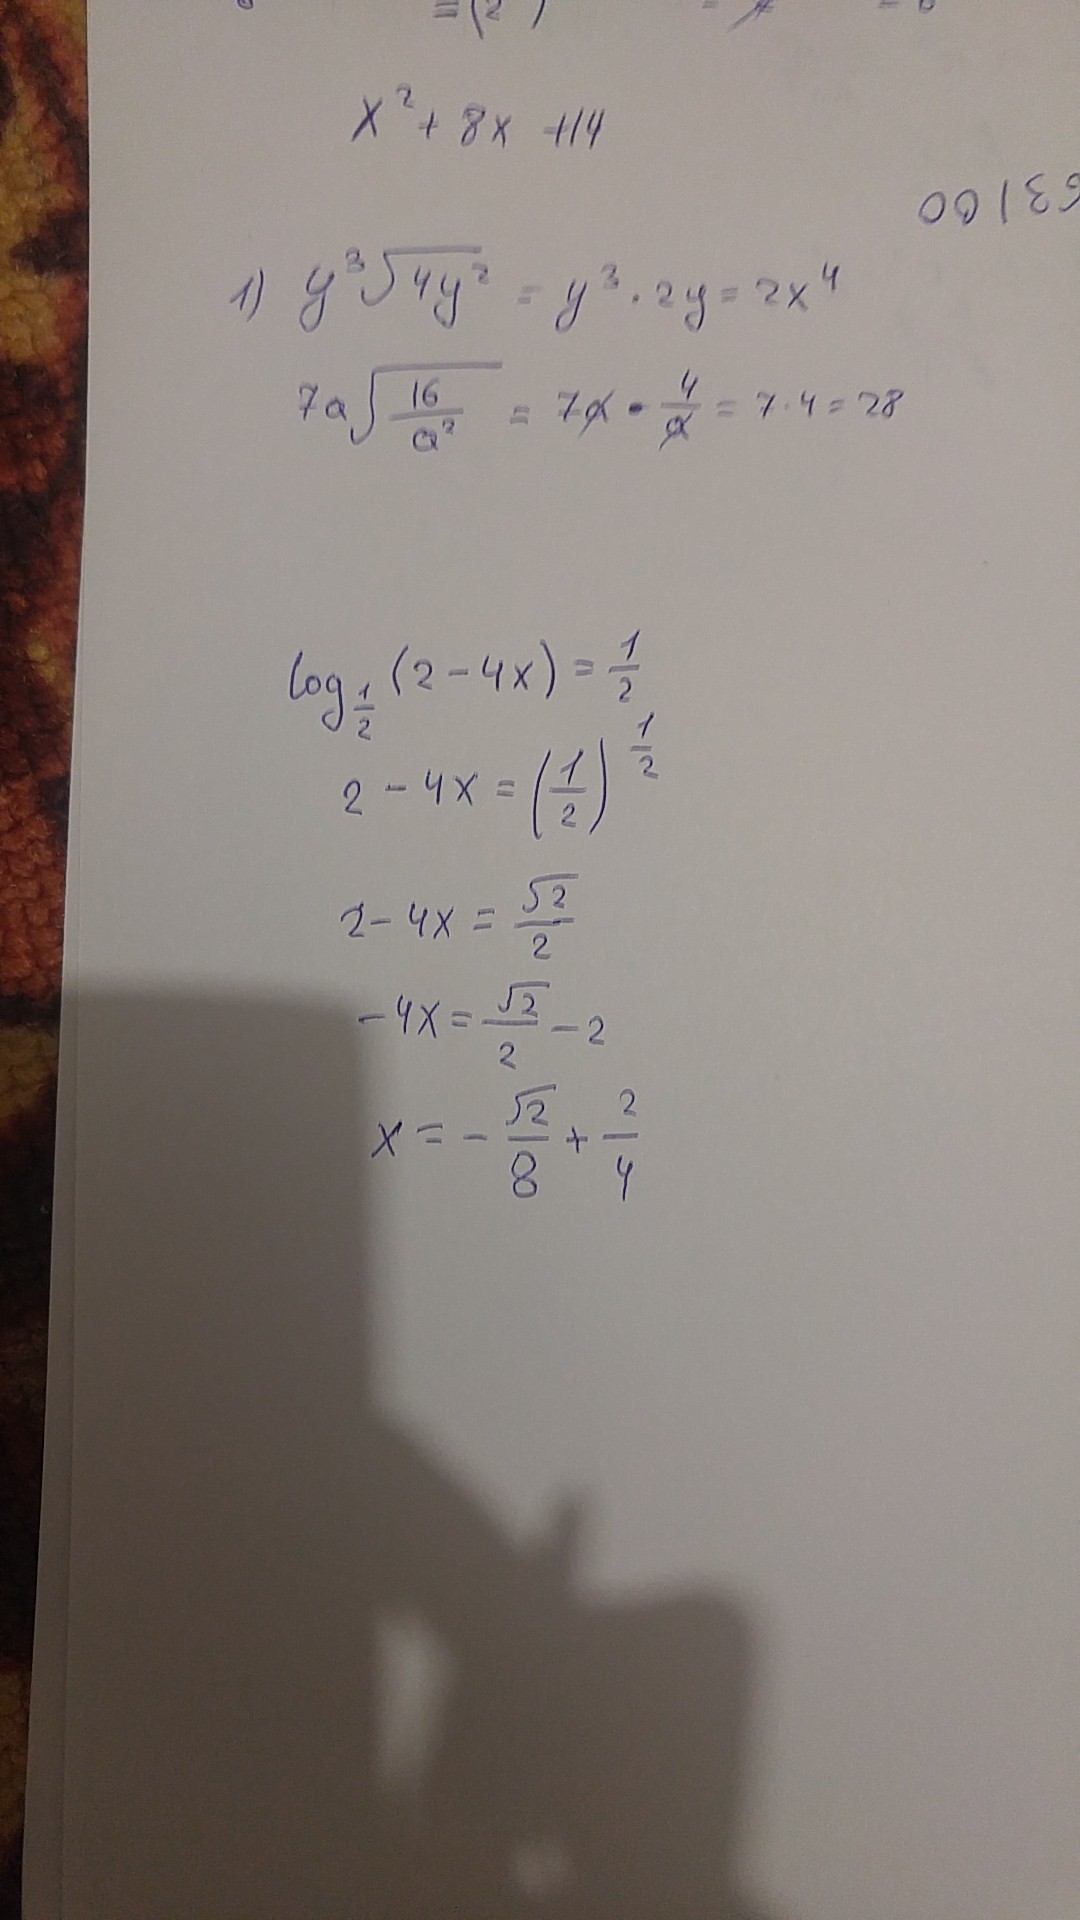 x² + 8x + 14
1) y³√(4y²) = y³ · 2y = 2x⁴
7a√(16/a²) = 7a · 4/a = 7 · 4 = 28
log_(1/2) (2 - 4x) = 1/2
2 - 4x = (1/2)^(1/2)
2 - 4x = √2/2
-4x = √2/2 - 2
x = - √2/8 + 2/4